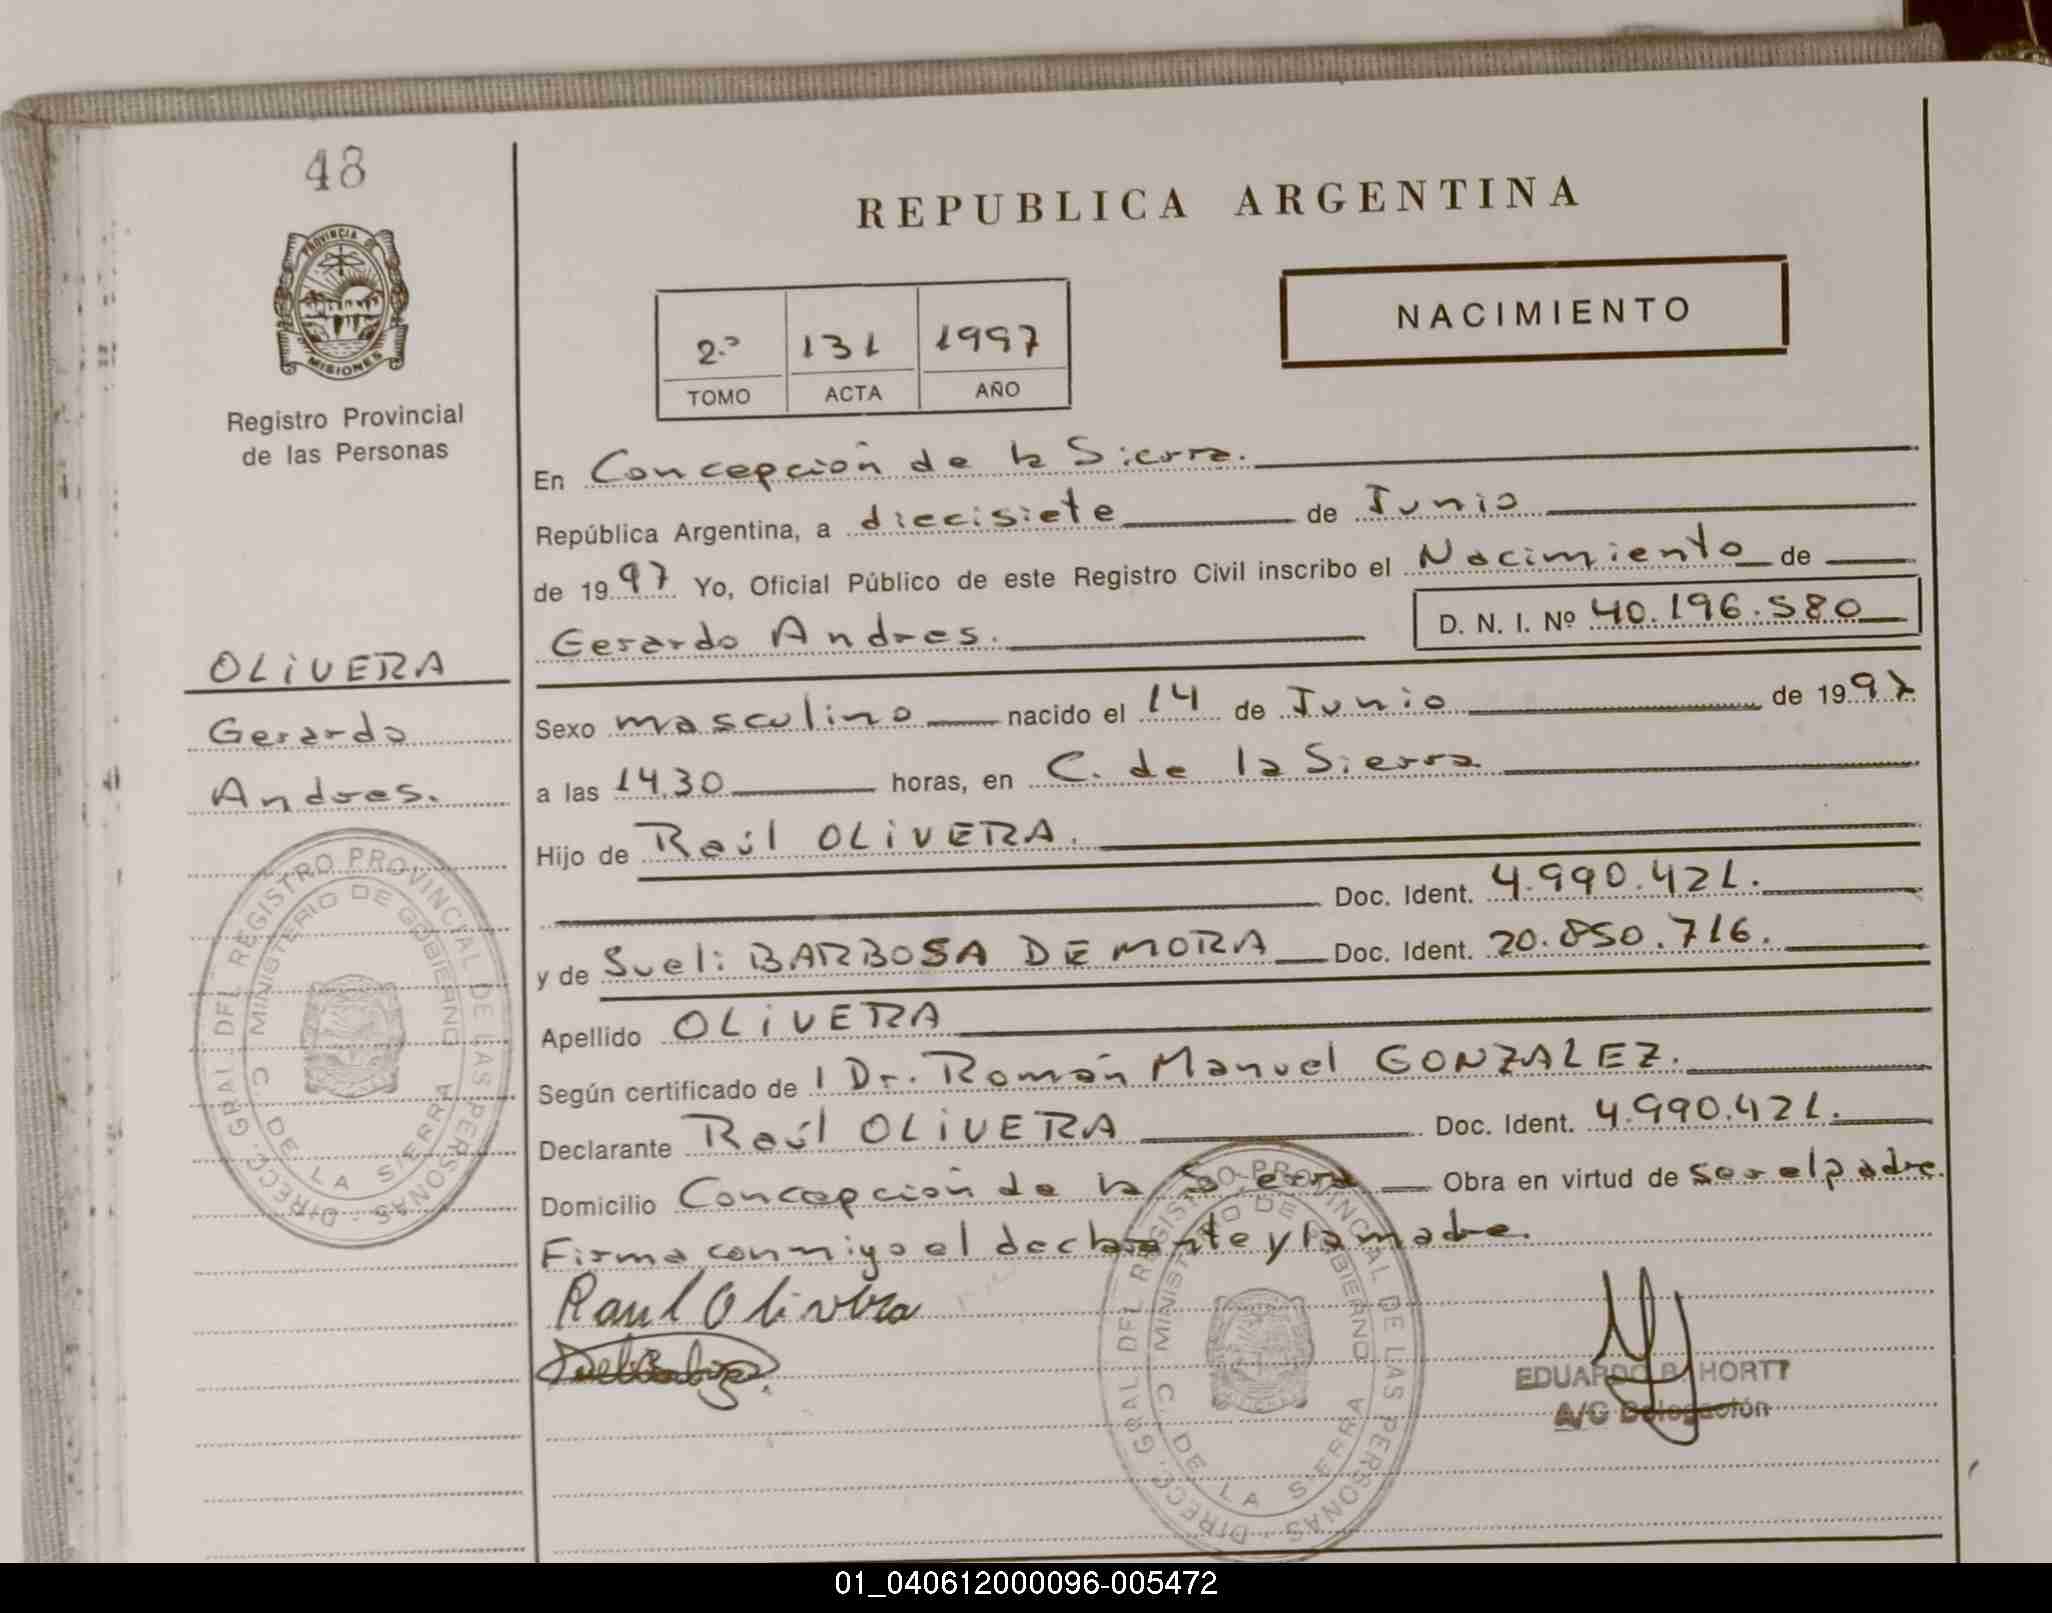 48
PROVINCIA DE
MISIONES
Registro Provincial
de las Personas
OLIVERA
Gerardo
Andres.
DIRECC. GRAL. DEL REGISTRO PROVINCIAL DE LAS PERSONAS
MINISTERIO DE GOBIERNO
C. DE LA SIERRA
REPUBLICA ARGENTINA
NACIMIENTO
2.º 131 1997
TOMO ACTA AÑO
En Concepción de la Sierra.
República Argentina, a diecisiete de Junio
de 1997 Yo, Oficial Público de este Registro Civil inscribo el Nacimiento de
Gerardo Andres. D. N. I. Nº 40.196.580
Sexo masculino nacido el 14 de Junio de 1997
a las 14.30 horas, en C. de la Sierra
Hijo de Raúl OLIVERA.
Doc. Ident. 4.990.421.
y de Sueli BARBOSA DE MORA Doc. Ident. 20.850.716.
Apellido OLIVERA
Según certificado de l Dr. Román Manuel GONZALEZ.
Declarante Raúl OLIVERA Doc. Ident. 4.990.421.
Domicilio Concepción de la Sierra Obra en virtud de ser el padre.
Firma conmigo el declarante y la madre.
Raul Olivera
DIRECC. GRAL. DEL REGISTRO PROVINCIAL DE LAS PERSONAS
MINISTERIO DE GOBIERNO
C. DE LA SIERRA
EDUARDO B. HORTT
A/C Delegación
01_040612000096-005472